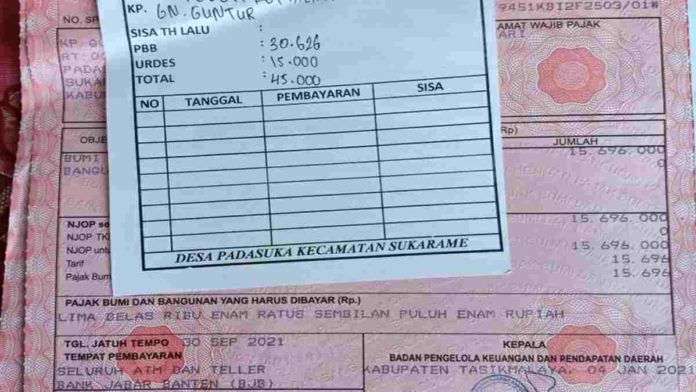 KP. GN. GUNTUR
SISA TH LALU :
PBB : 30.626
URDES : 15.000
TOTAL : 45.000
NO TANGGAL PEMBAYARAN SISA
DESA PADASUKA KECAMATAN SUKARAME
9451KBI2F2503/01#
AMAT WAJIB PAJAK
ARI
KP
RT:
PADA
SUKA
KABU
OBJE
Rp)
JUMLAH
BUMI 15.696.000
BANGU 0
NJOP se 15.696.000
NJOP TK 0
NJOP untu 15.696.000
Tarif 15.696
Pajak Bum 15.696
PAJAK BUMI DAN BANGUNAN YANG HARUS DIBAYAR (Rp.)
LIMA BELAS RIBU ENAM RATUS SEMBILAN PULUH ENAM RUPIAH
TGL. JATUH TEMPO 30 SEP 2021
TEMPAT PEMBAYARAN
SELURUH ATM DAN TELLER
BANK JABAR BANTEN (BJB)
KEPALA
BADAN PENGELOLA KEUANGAN DAN PENDAPATAN DAERAH
KABUPATEN TASIKMALAYA, 04 JAN 202